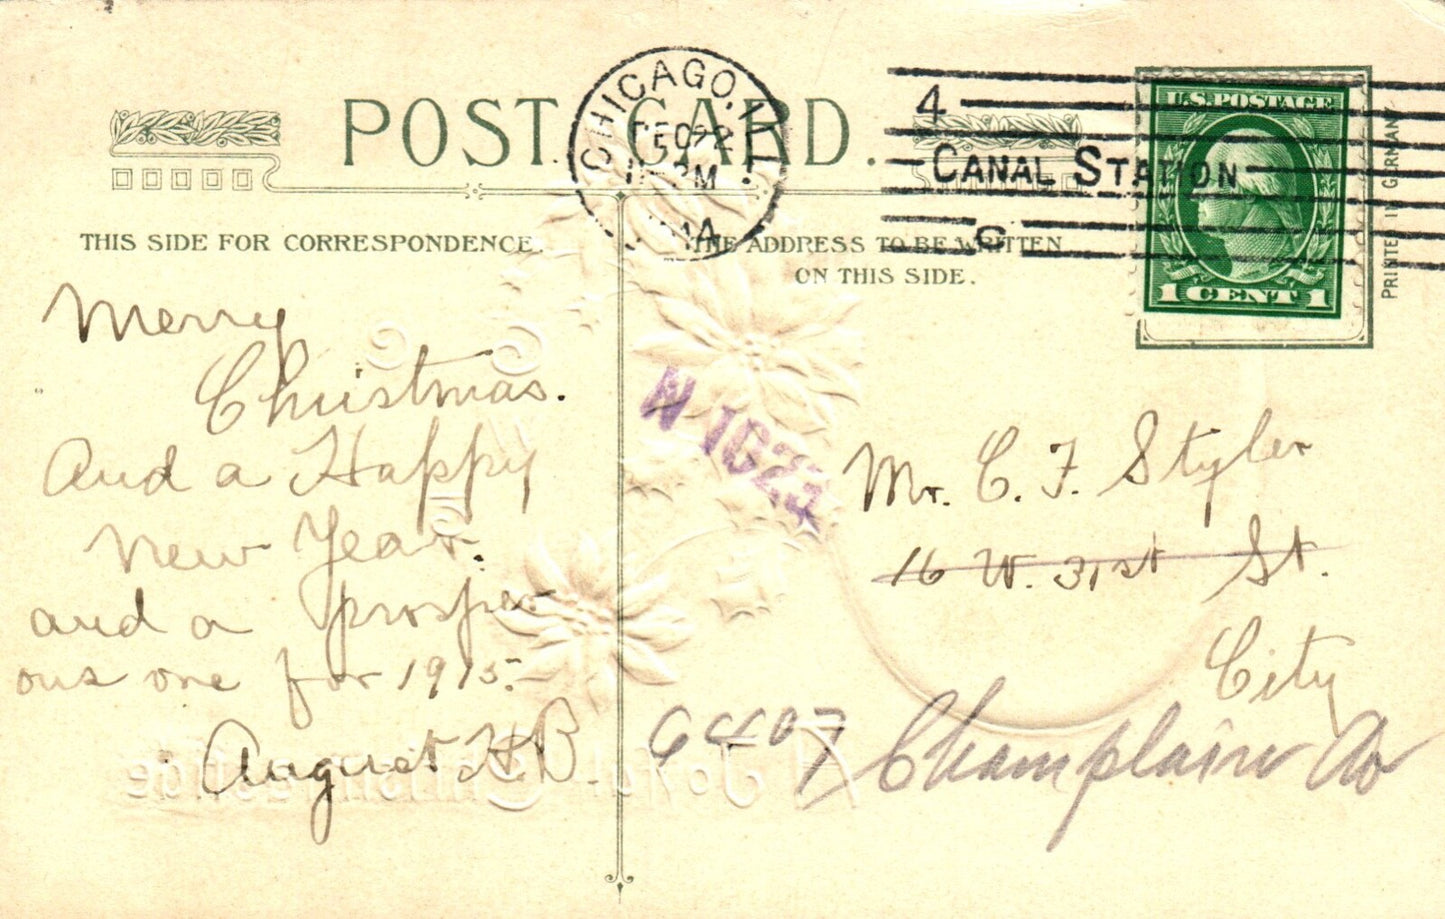 POST CARD.
CHICAGO, ILL.
DEC 22
PM
4
CANAL STATION
C
U.S. POSTAGE
1 CENT 1
PRINTED IN GERMANY
THIS SIDE FOR CORRESPONDENCE.
THE ADDRESS TO BE WRITTEN
ON THIS SIDE.
Merry
Christmas.
And a Happy
New Year.
and a prosper
ous one for 1915.
August H.B.
Mr. C. F. Styler
16 W. 31st St.
City
6407 Champlain Av
A Joyful Christmastide